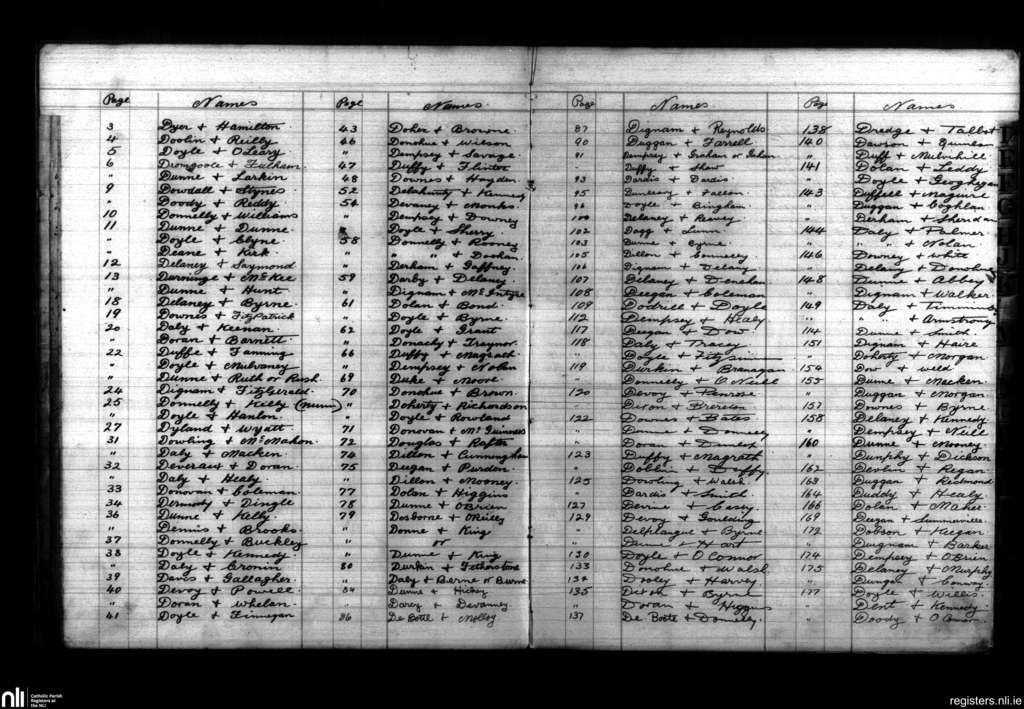 Page Names
3 Dyer + Hamilton
4 Doolin + Reilly
5 Doyle + O'Leary
6 Dromgoole +
" Dunne + Larkin
9 Dowdall + Stynes
" Doody + Reddy
10 Donnelly + Williams
11 Dunne + Dunne
" Doyle + Clyne
" Deane + Kirk
12 Delaney + Saymond
13 + McKee
" Dunne + Hunt
18 Delaney + Byrne
19 Downes + FitzPatrick
20 Daly + Keenan
" Doran + Barnett
22 Duffe + Fanning
" Doyle + Mulvaney
" Dunne + Ruth or Rush
24 Dignam + FitzGerald
25 Donnelly + Kelly (Munn)
" Doyle + Hanlon
27 Dyland + Wyatt
31 Dowling + McMahon
" Daly + Macken
32 Deveraux + Doran
" Daly + Healy
33 Donovan + Coleman
34 Dermody + Dingle
36 Dunne + Kelly
" Dennis + Brooks
37 Donnelly + Buckley
38 Doyle + Kennedy
" Daly + Cronin
39 Davis + Gallagher
40 Devoy + Powell
" Doran + Whelan
41 Doyle + Finnegan
Page Names
43 Doher + Browne
46 Donohue + Wilson
" Dempsey + Savage
47 Duffy + Flinter
48 Downes + Hayden
52 Delahunty +
54 Devaney + Monks
" Dempsey + Downey
" Doyle + Sherry
58 Donnelly + Rooney
" " + Doohan
" Derham + Gaffney
59 Darby + Delany
" Dignam + McIntyre
61 Dolan + Bond
" Doyle + Byrne
62 Doyle + Grant
" Donachy + Traynor
66 Duffy + Magrath
" Dempsey + Nolan
69 Duke + Moore
70 Donohue + Brown
" Doherty + Richardson
" Doyle + Rowland
71 Donovan + McGuinness
72 Douglas + Rafter
74 Dillon + Cunningham
75 Deegan + Purdon
" Dillon + Mooney
77 Dolan + Higgins
78 Dunne + O'Brien
79 Desborne + O'Reilly
" Donne + King
or
" Dunne + King
80 Durkan + Fetherstone
" Daly + Berne or Burne
84 Dunne + Hickey
" Darcy + Devanney
86 De Botte + Molloy
Page Names
87 Dignam + Reynolds
90 Duggan + Farrell
91 Dempsey + Graham or
" Duffy + Shaw
93 Dardis + Dardis
95 Dunleavy + Fallon
96 Doyle + Bingham
100 Delaney + Reavey
102 Dagg + Lunn
103 Dunne + Byrne
105 Dillon +
106 Dignam + Delany
107 Delaney + Denehan
108 Deegan + Coleman
109 Dockrice + Doyle
112 Dempsey + Healy
117 Deegan + Dow
118 Daly + Tracey
" Doyle + Fitzsimon
119 Durkin + Branagan
" Donnelly + O'Neill
120 Devoy + Penrose
" Dixon + Brereton
122 Downes + Bates
" Dunne + Donnelly
" Doran +
123 Duffy + Magrath
" Dobbin + Duffy
125 Dowling + Walsh
" Dardis + Smith
127 Berrie + Casey
129 Devoy + Goulding
" Delplanque + Byrne
" Dunne + Hart
130 Doyle + O'Connor
133 Donohue + Walsh
134 Dooley + Harvey
135 + Byrne
" Doran + Higgins
137 De Botte + Donnelly
Page Names
138 Dredge + Talbot
140 Dawson + Quinlan
" Duff + Mulvihill
141 Dolan + Leddy
" Doyle + Geoghagan
143 Duffell + Maguire
" Duggan + Coghlan
" Derham + Sheridan
144 Daly + Palmer
" " + Nolan
146 Downey + White
" Delany +
148 Dunne + Abbey
" Dignam + Walker
149 Daly +
" " + Armstrong
114 Dunne + Smith
151 Dignan + Haire
" Doherty + Morgan
154 Dow + Weld
155 Dunne + Macken
" Duggan + Morgan
157 Downes + Byrne
158 Delaney + Kennedy
" Dempsey + Neill
160 Dunne + Mooney
" Dunphy + Dickson
162 Devlin + Regan
163 Duggan + Redmond
164 Duddy + Healy
166 Dolan + Maher
169 Deegan + Summerville
172 Dobson + Keegan
" Duignam + Barker
174 Dempsey + O'Brien
175 Delaney + Murphy
" Dungan + Conway
177 Doyle + Willis
" Dent + Kennedy
" Doody + O'Connor
nli
Catholic Parish
Registers at
the NLI
registers.nli.ie